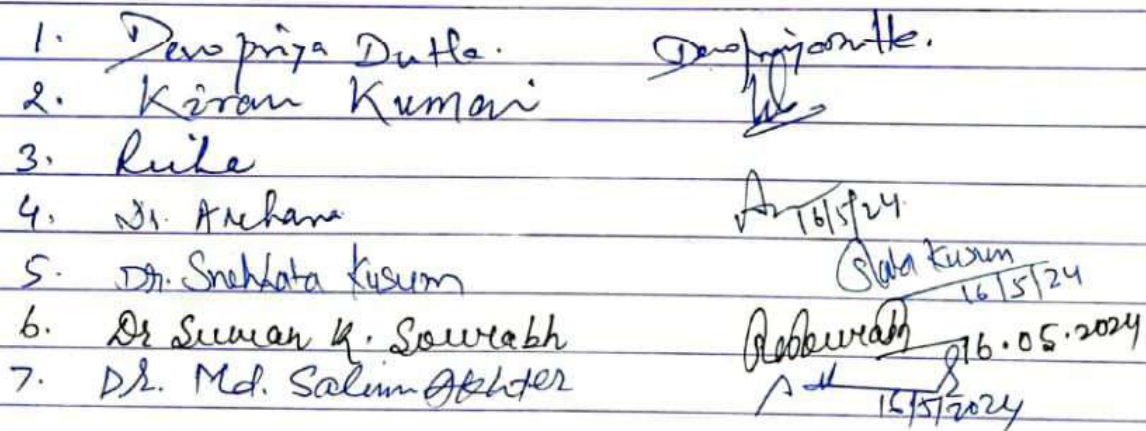 1. Devopriya Dutta. Devopriya Dutta.
2. Kiran Kumari
3.
4. Dr. Archana 16/5/24
5. Dr. Snehlata Kusum Slata Kusum 16/5/24
6. Dr Suman K. Sourabh 16.05.2024
7. DR. Md. Salim Akhter 16/5/2024